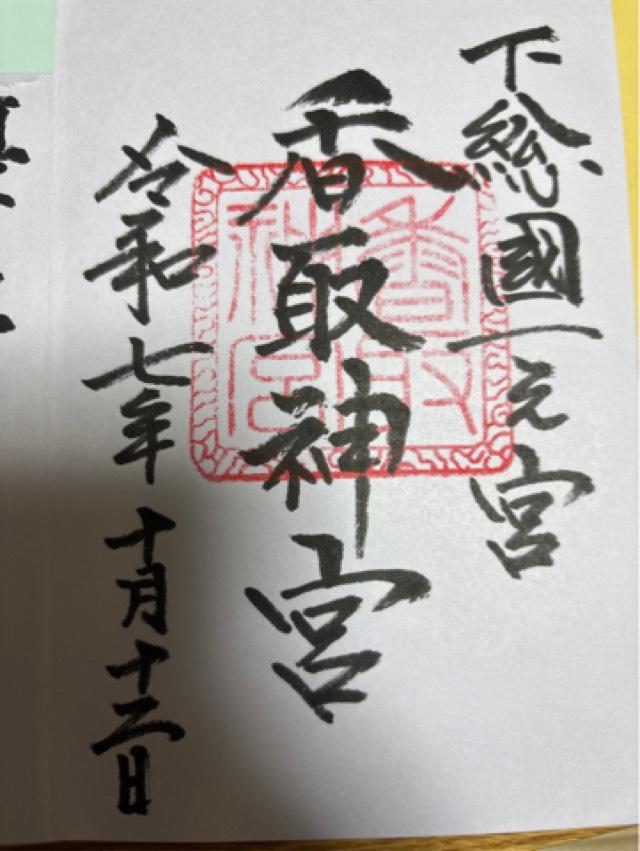 下総國一之宮
香取神宮
香取
神宮
令和七年十月十二日